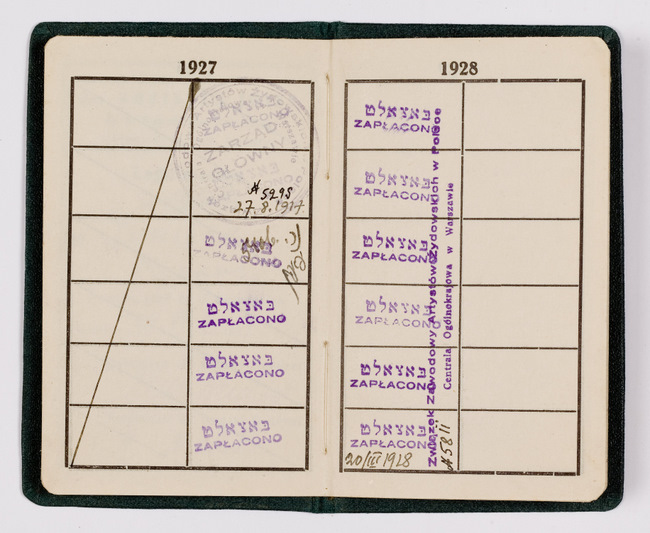 1927
באצאלט
ZAPŁACONO
ZARZĄD
GŁÓWNY
N 5295
27.8.1927.
באצאלט
ZAPŁACONO
באצאלט
ZAPŁACONO
באצאלט
ZAPŁACONO
באצאלט
ZAPŁACONO
1928
באצאלט
ZAPŁACONO
באצאלט
ZAPŁACONO
באצאלט
ZAPŁACONO
באצאלט
ZAPŁACONO
באצאלט
ZAPŁACONO
באצאלט
ZAPŁACONO
20/III 1928
Związek Zawodowy Artystów Żydowskich w Polsce
Centrala Ogólnokrajowa w Warszawie
N 5811